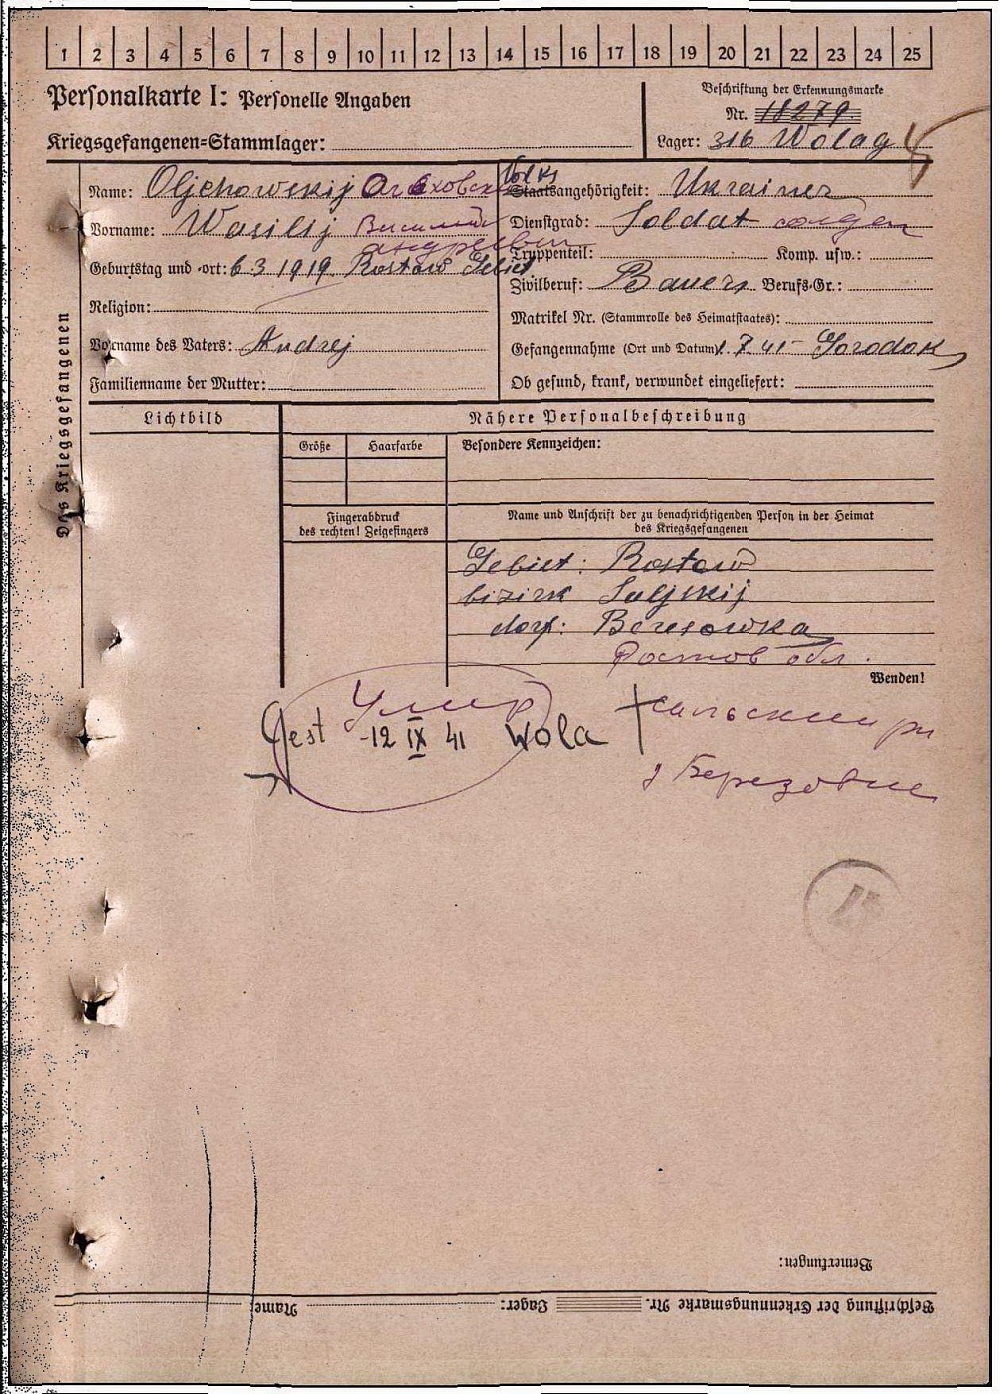 1 2 3 4 5 6 7 8 9 10 11 12 13 14 15 16 17 18 19 20 21 22 23 24 25
Personalkarte I: Personelle Angaben
Kriegsgefangenen=Stammlager:
Beschriftung der Erkennungsmarke
Nr. 18279.
Lager: 316 Wolag
Des Kriegsgefangenen
Name: Oljchowskij Ольховский
Vorname: Wasilij Василий
Андреевич
Geburtstag und =ort: 6 3 1919. Rostow Gebiet
Religion:
Vorname des Vaters: Andrej
Familienname der Mutter:
Volks
Staatsangehörigkeit: Ukrainer
Dienstgrad: Soldat солдат
Truppenteil: Komp. usw.:
Zivilberuf: Bauer Berufs=Gr.:
Matrikel Nr. (Stammrolle des Heimatstaates):
Gefangennahme (Ort und Datum): 1. 7. 41 - Gorodok
Ob gesund, krank, verwundet eingeliefert:
Lichtbild
Nähere Personalbeschreibung
Größe Haarfarbe Besondere Kennzeichen:
Fingerabdruck
des rechten! Zeigefingers
Name und Anschrift der zu benachrichtigenden Person in der Heimat
des Kriegsgefangenen
Gebiet: Rostow
bizirk Saljskij
dorf: Beresowka
Ростов обл.
Wenden!
Умер
Gest -12 IX 41 Wola
Сальский рн
Березовке
Bemerkungen:
Beschriftung der Erkennungsmarke Nr. Lager: Name